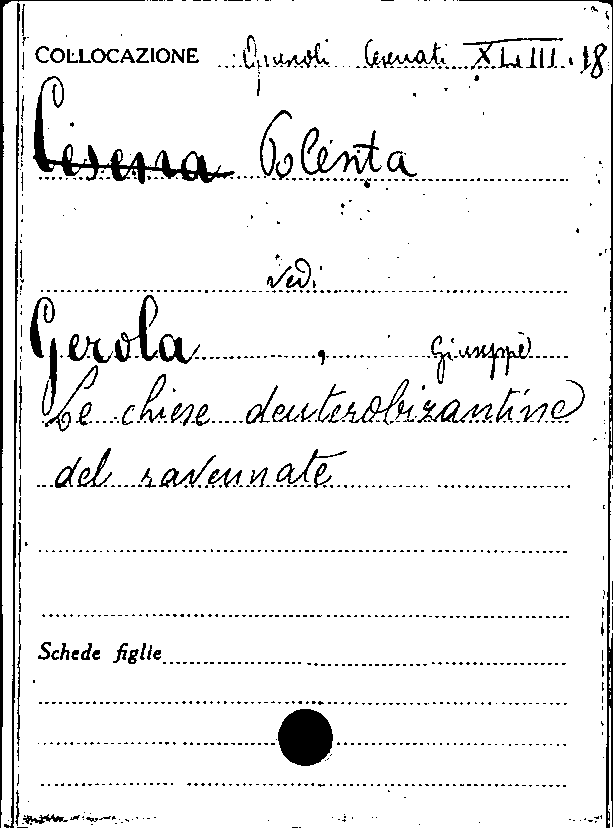 COLLOCAZIONE Opuscoli Cesenati XLIII.18
Cesena Polenta
vedi
Gerola, Giuseppe
Le chiese deuterobizantine
del ravennate
Schede figlie